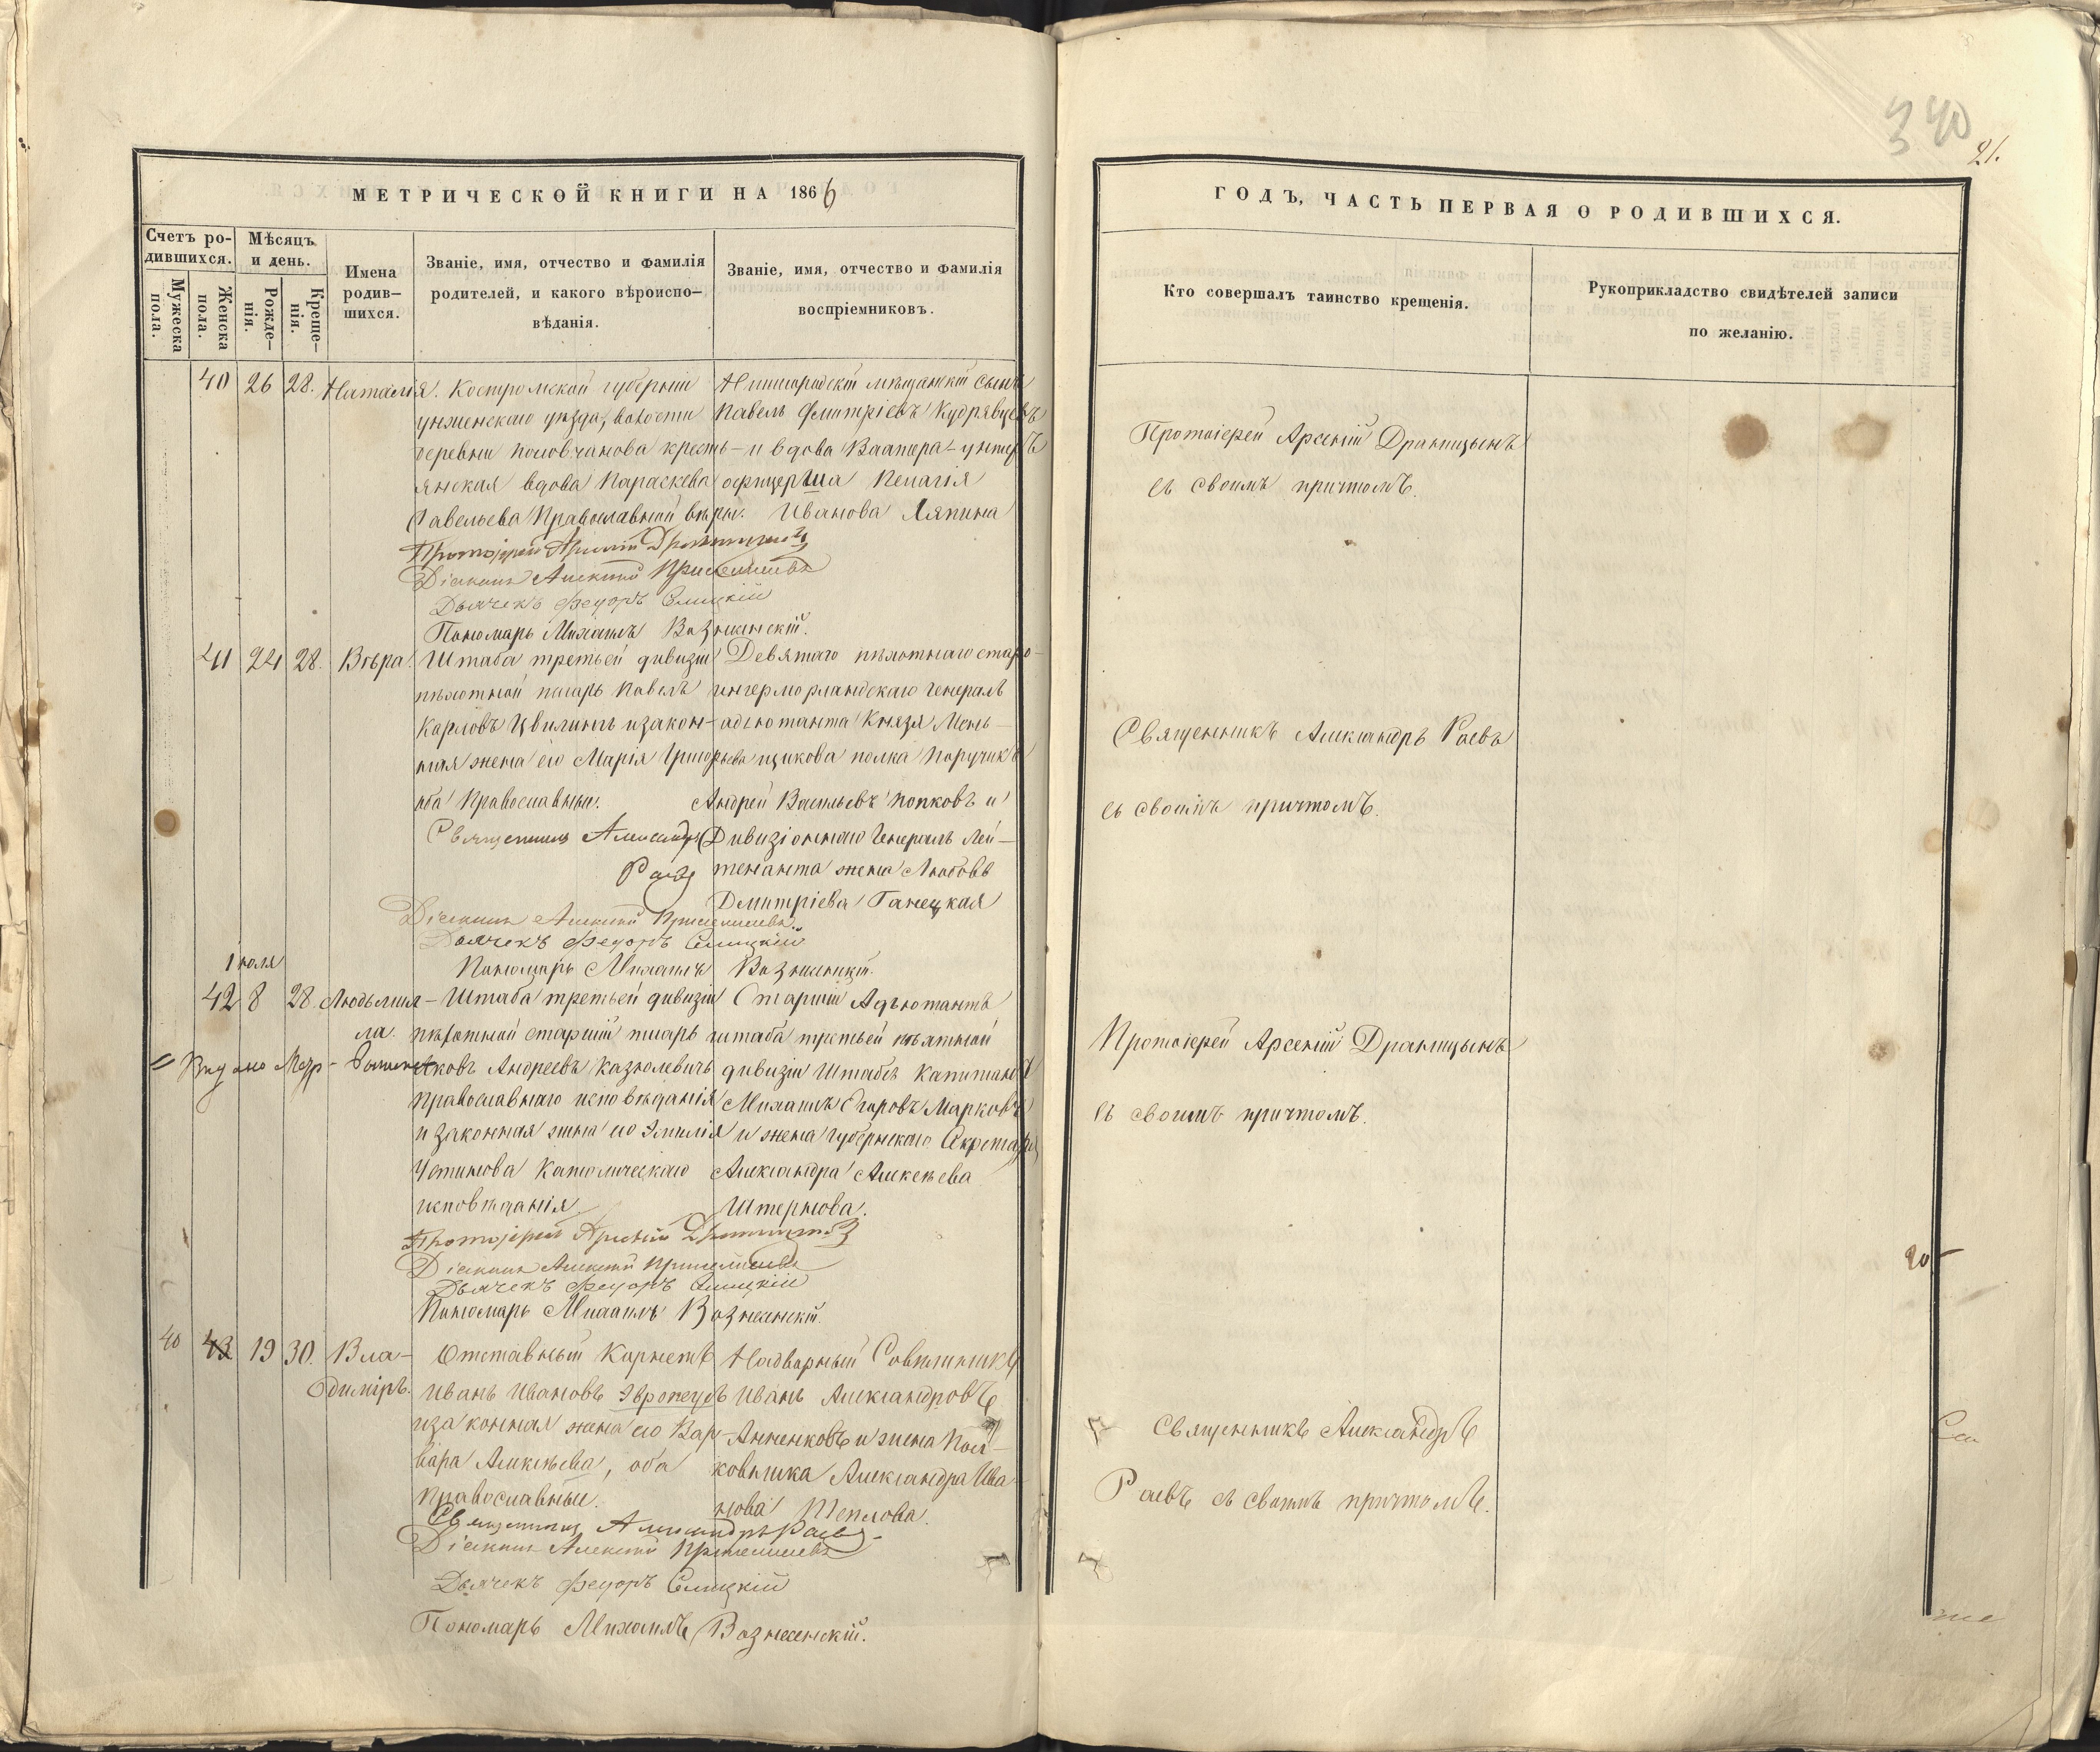 340
21.
МЕТРИЧЕСКОЙ КНИГИ НА 1866
Счетъ ро-
дившихся.
Мужеска
пола.
Женска
пола.
Мѣсяцъ
и день.
Рожде-
нія.
Креще-
нія.
Имена
родив-
шихся.
Званіе, имя, отчество и фамилія
родителей, и какого вѣроиспо-
вѣданія.
Званіе, имя, отчество и фамилія
воспріемниковъ.
40 26 28. Наталія.
Костромской губерніи
унженскаго уѣзда, волости
деревни Половчанова кресть-
янская вдова Параскева
Савельева Православной вѣры.
Нижегородскій мѣщанскій сынъ
Павелъ Дмитріевъ Кудрявцевъ
и вдова Ваатера-унтеръ
офицерша Пелагія
Иванова Ляпина
Протоіерей Арсеній Драницынъ
Діаконъ Алексѣй
Дьячекъ Федоръ Елицкій
Пономарь Михаилъ Вознесенскій.
41 24 28. Вѣра.
Штаба третьей дивизіи
пѣхотной писарь Павелъ
Карловъ Цвилингъ и закон-
ная жена его Марія Григорьева
оба Православные.
Девятаго пѣхотнаго старо-
ингерморландскаго Генералъ
адъютанта Князя Мень-
щикова полка Поручикъ
Андрей Васильевъ Попковъ и
Дивизіоннаго Генералъ Лей-
тенанта жена Любовь
Дмитріева Ганецкая
Священникъ Александръ
Раевъ
Діаконъ Алексѣй
Дьячекъ Федоръ Елицкій
Пономарь Михаилъ Вознесенскій.
Іюля
42 8 28. Людьмил-
ла.
Штаба третьей дивизіи
пѣхотной старшій писарь
Яковъ Андреевъ Казюлевичъ
православнаго исповѣданія
и законная жена его Эмилія
Устинова Католическаго
исповѣданія.
Старшій Адъютантъ
штаба третьей пѣхотной
дивизіи Штабсъ Капитанъ
Михаилъ Егоровъ Марковъ
и жена губернскаго Секретаря
Александра Алексѣева
Штернова.
Протоіерей Арсеній Драницынъ
Діаконъ Алексѣй
Дьячекъ Федоръ Елицкій
Пономарь Михаилъ Вознесенскій.
40 43 19 30. Вла-
димiръ.
Отставный Корнетъ
Иванъ Ивановъ Эвропеусъ
и законная жена его Вар-
вара Алексѣева, оба
православные.
Надворный Совѣтникъ
Иванъ Александровъ
Анненковъ и жена Пол-
ковника Александра Ива
нова Теплова.
Священникъ Александръ Раевъ
Діаконъ Алексѣй
Дьячекъ Федоръ Елицкій
Пономарь Михаилъ Вознесенскій.
ГОДЪ, ЧАСТЬ ПЕРВАЯ О РОДИВШИХСЯ.
Кто совершалъ таинство крещенія.
Рукоприкладство свидѣтелей записи
по желанію.
Протоіерей Арсеній Драницынъ
съ своимъ причтомъ.
Священникъ Александръ Раевъ
съ своимъ причтомъ.
Протоіерей Арсеній Драницынъ
съ своимъ причтомъ.
Священникъ Александръ
Раевъ съ своимъ причтомъ.